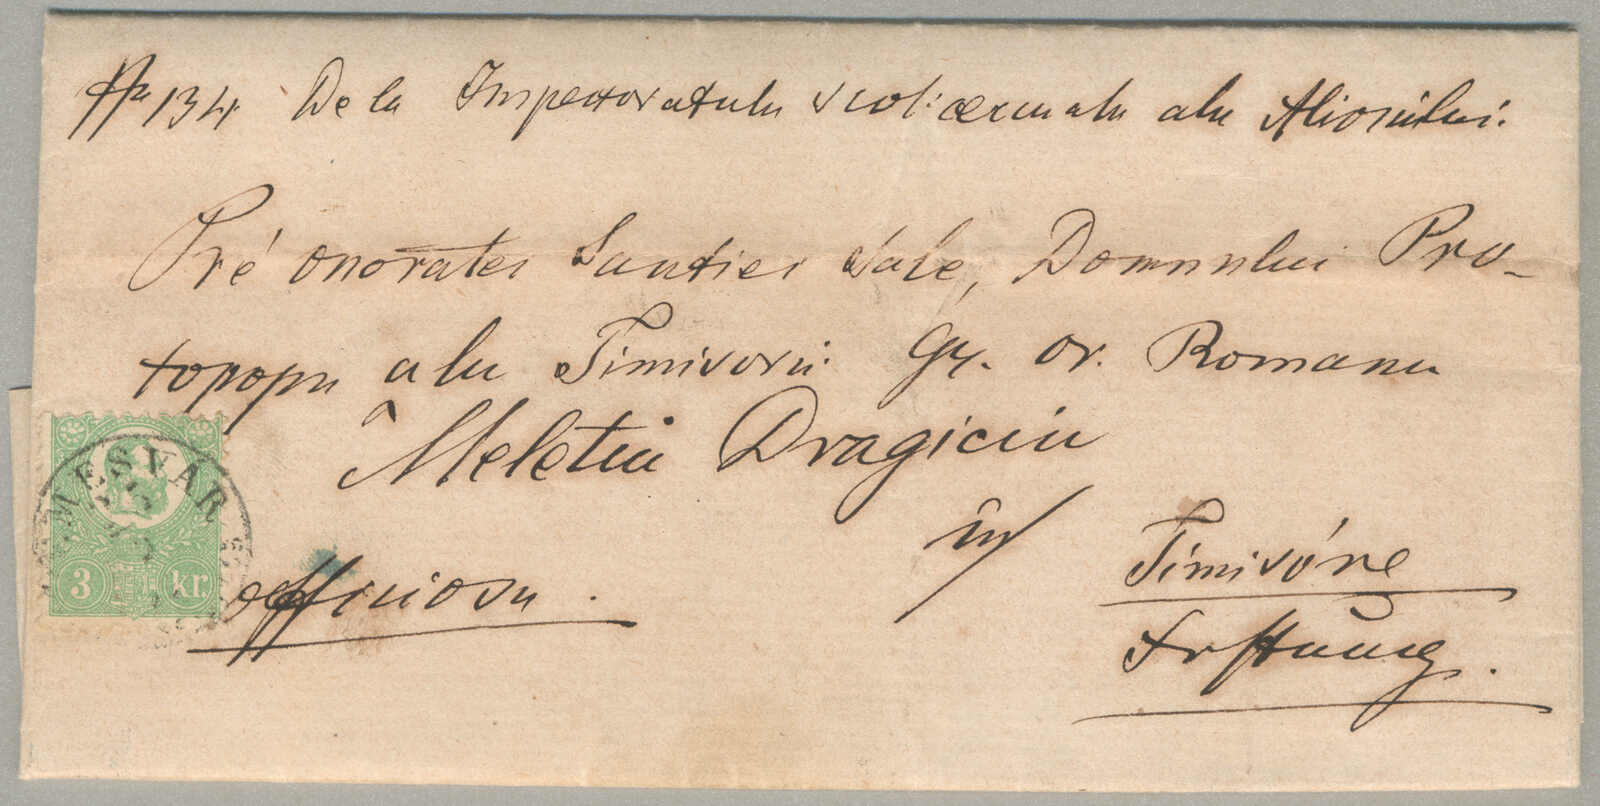 Nr 134 De la Inspectoratulu scol: cercualu alu Aliosiului.
Pré onoratei Santiei Sale, Domnului Pro-
topopu alu Timisorii: Gr. or. Romanu
Meletiu Dragiciu
în/ Timisóre
officiosu.
Festung.
TEMESVÁR
3 kr.